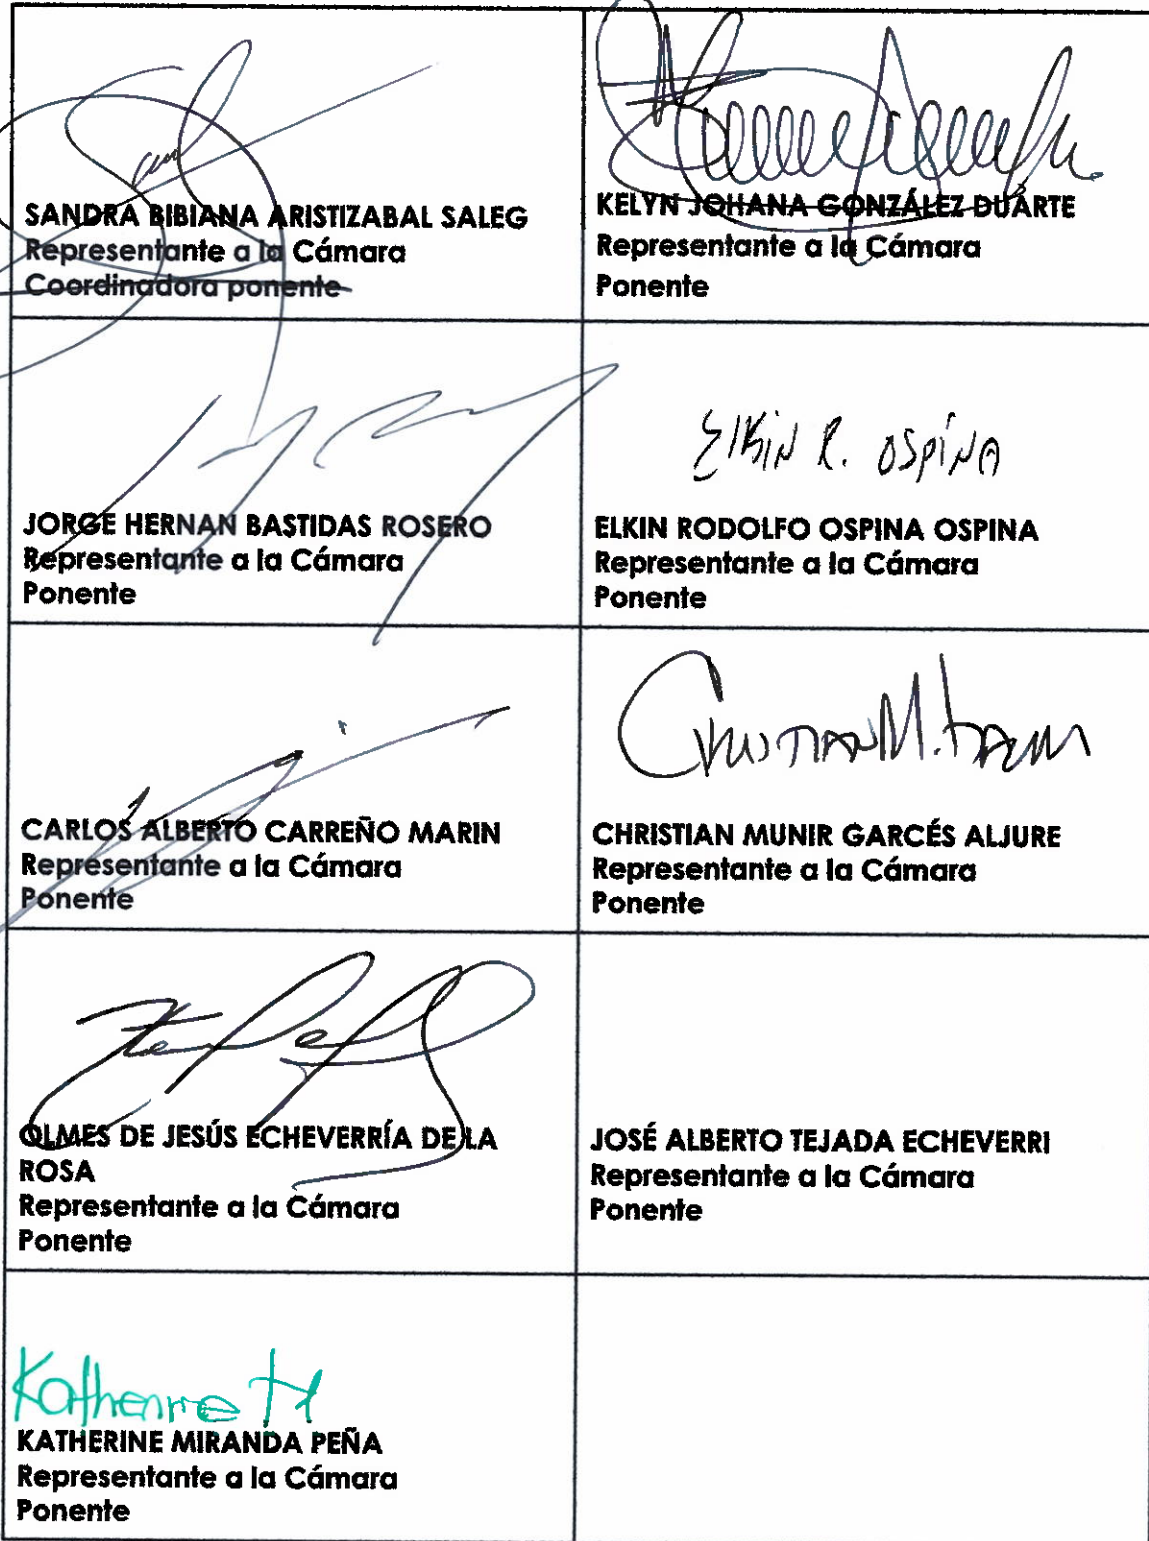 SANDRA BIBIANA ARISTIZABAL SALEG
Representante a la Cámara
Coordinadora ponente
KELYN JOHANA GONZÁLEZ DUARTE
Representante a la Cámara
Ponente
JORGE HERNAN BASTIDAS ROSERO
Representante a la Cámara
Ponente
Elkin R. OSpíNA
ELKIN RODOLFO OSPINA OSPINA
Representante a la Cámara
Ponente
CARLOS ALBERTO CARREÑO MARIN
Representante a la Cámara
Ponente
CHRISTIAN MUNIR GARCÉS ALJURE
Representante a la Cámara
Ponente
OLMES DE JESÚS ECHEVERRÍA DE LA
ROSA
Representante a la Cámara
Ponente
JOSÉ ALBERTO TEJADA ECHEVERRI
Representante a la Cámara
Ponente
Katherine M
KATHERINE MIRANDA PEÑA
Representante a la Cámara
Ponente